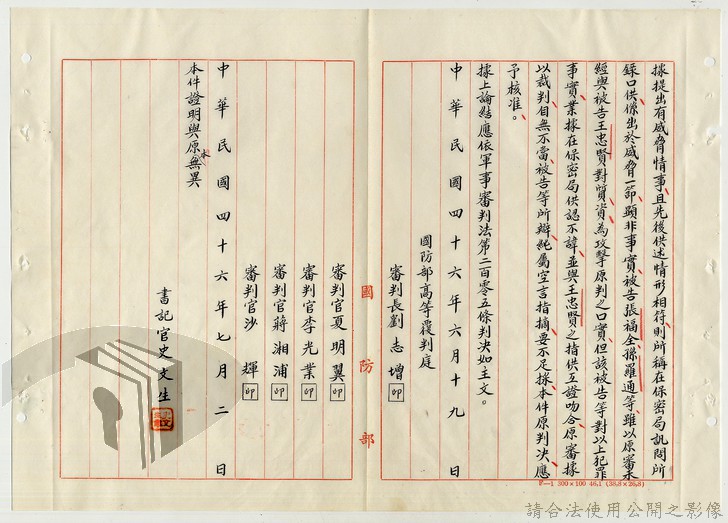 據提出有威脅情事且先後供述情形相符則所稱在保密局訊問所
錄口供係出於威脅一節顯非事實被告張福全孫羅通等雖以原審未
經與被告王忠賢對質資為攻擊原判之口實但該被告等對以上犯罪
事實業據在保密局供認不諱並與王忠賢之指供互證吻合原審據
以裁判自無不當被告等所辯純屬空言指摘要不足採本件原判決應
予核准。
據上論結應依軍事審判法第二百零五條判決如主文。
中華民國四十六年六月十九日
國防部高等覆判庭
審判長劉志增 印
審判官夏明翼 印
審判官李光業 印
審判官蔣湘浦 印
審判官沙輝 印
中華民國四十六年七月二日
本件證明與原本無異
書記官史文生
國防部
F—1 300×100 46.1 (38.8×26.8)
請合法使用公開之影像